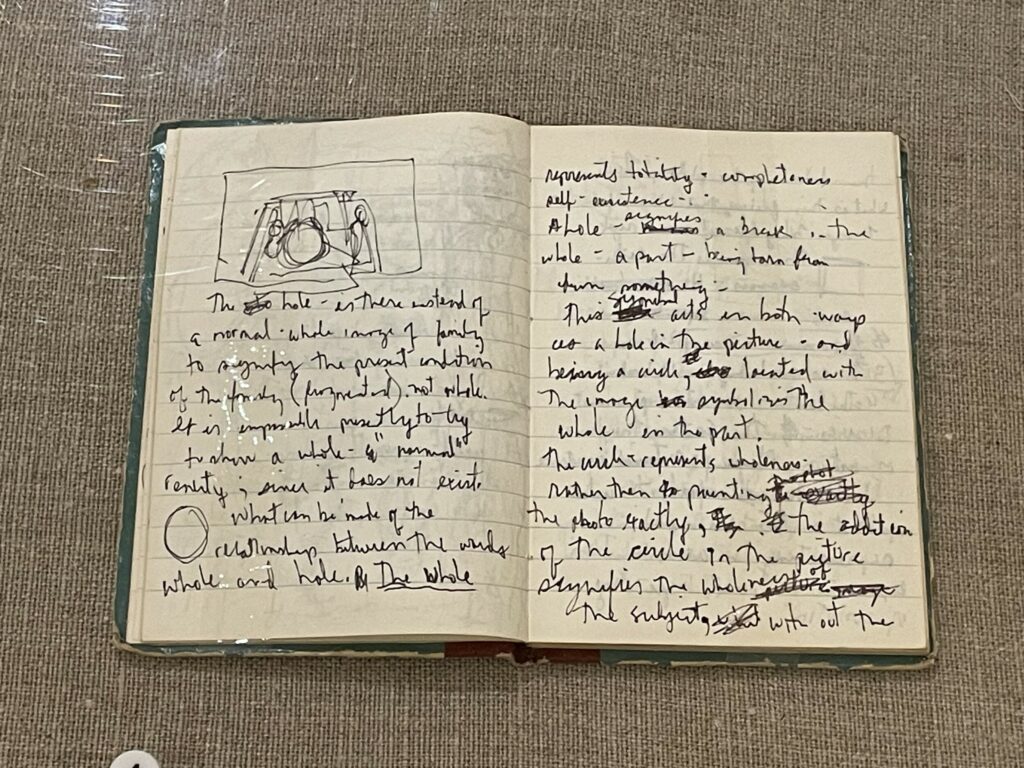 The hole - is there instead of
a normal whole image of family
to signify the present condition
of the family (fragmented). not whole.
It is impossible presently to try
to show a whole - & "normal"
reality; since it does not exist.
What can be made of the
relationship between the words
whole and hole. The Whole
represents totality - completeness
self - existence -
A hole - signifies a break in the
whole - a part - being torn from
from something -
This symbol acts in both ways
as a hole in the picture - and
being a circle, located with
the image symbolizes the
whole in the part.
the circle - represents wholeness.
rather then to painting
the photo exactly, the addition
of the circle in the picture
signifies the wholeness of
the subject, with out the